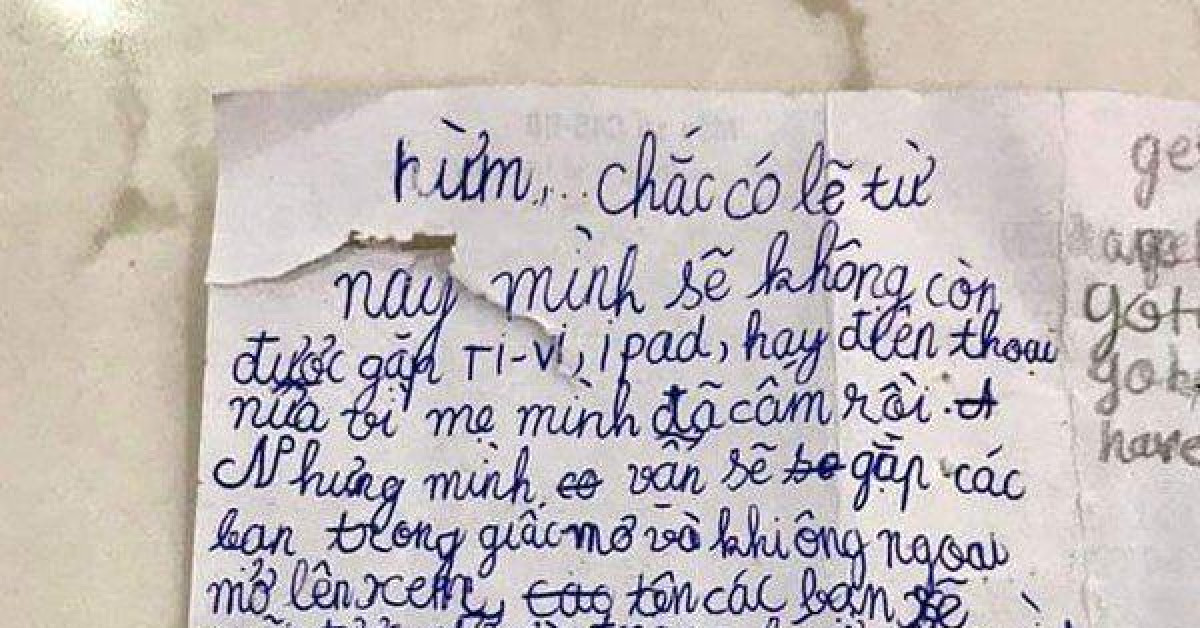 hừm,... chắc có lẽ từ
nay mình sẽ không còn
được gặp Ti-vi, ipad, hay điên thoại
nữa vì mẹ mình đã câm rồi.
Nhưng mình vẫn sẽ gặp các
bạn trong giấc mơ và khi ông ngoại
mở lên xem, tôn các bạn sẽ
got
have